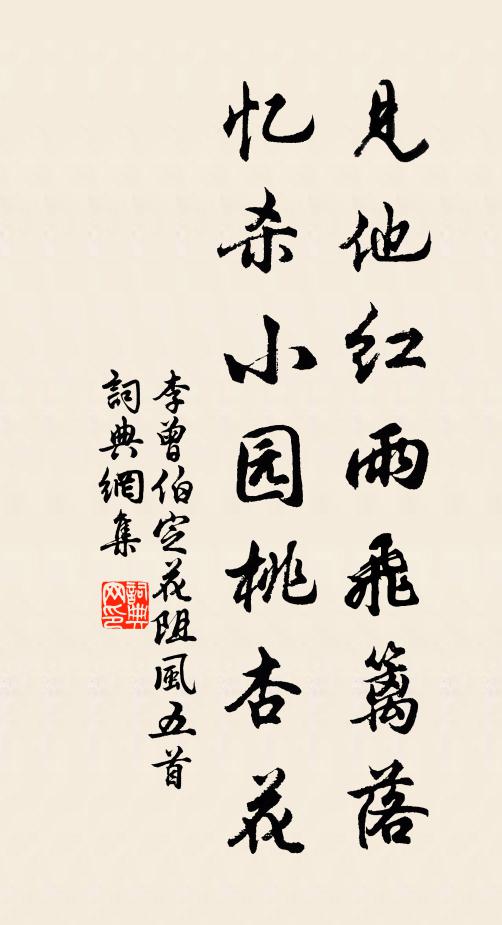 見他红雨飛籬落
忆杀小园桃杏花
李曾伯定花阻風五首
詞典網集
詞典网印